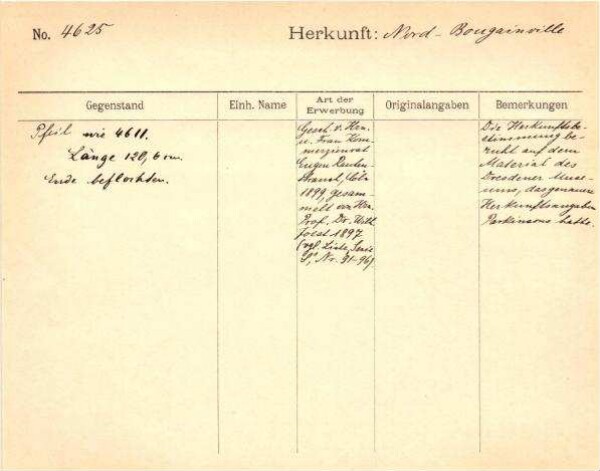 No. 4625
Herkunft: Nord-Bougainville
Gegenstand
Einh. Name
Art der Erwerbung
Originalangaben
Bemerkungen
Pfeil wie 4611.
Länge 120,6 cm.
Ende beflochten.
Gesch. v. Hrn.
u. Frau Kom-
merzienrat
Eugen Rauten-
strauch, Cöln
1899, gesam-
melt von Hrn.
Prof. Dr. Wilh.
Joest 1897
(vgl. Liste, Serie
Nr. 91-96).
Die Herkunftsbe-
stimmung be-
ruht auf dem
Material des
Dresdener Muse-
ums, das genauere
Herkunftsangaben
Parkinsons hatte.